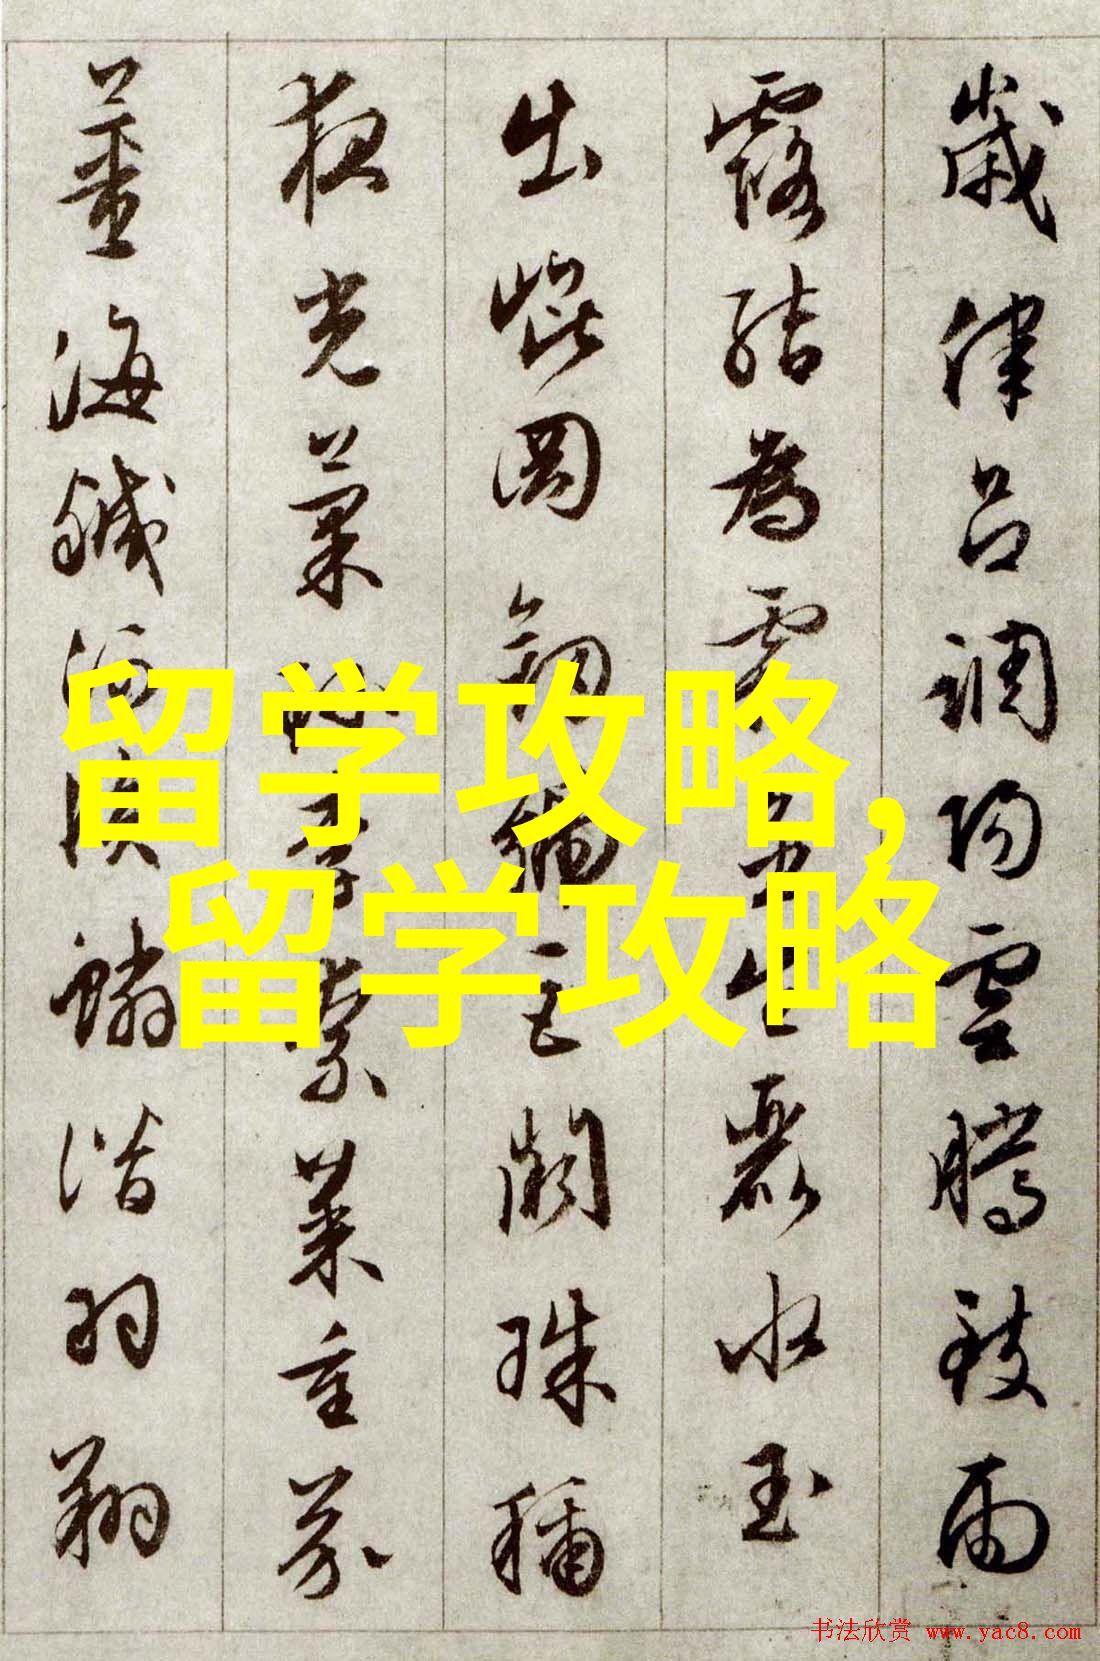 歲律呂調陽雲騰致雨
露結為霜金生麗水玉
出崐岡劍號巨闕珠稱
夜光菓珍李柰菜重芥
薑海鹹河淡鱗潛羽翔
留学攻略,
留学攻略
书法欣赏 www.yac8.com